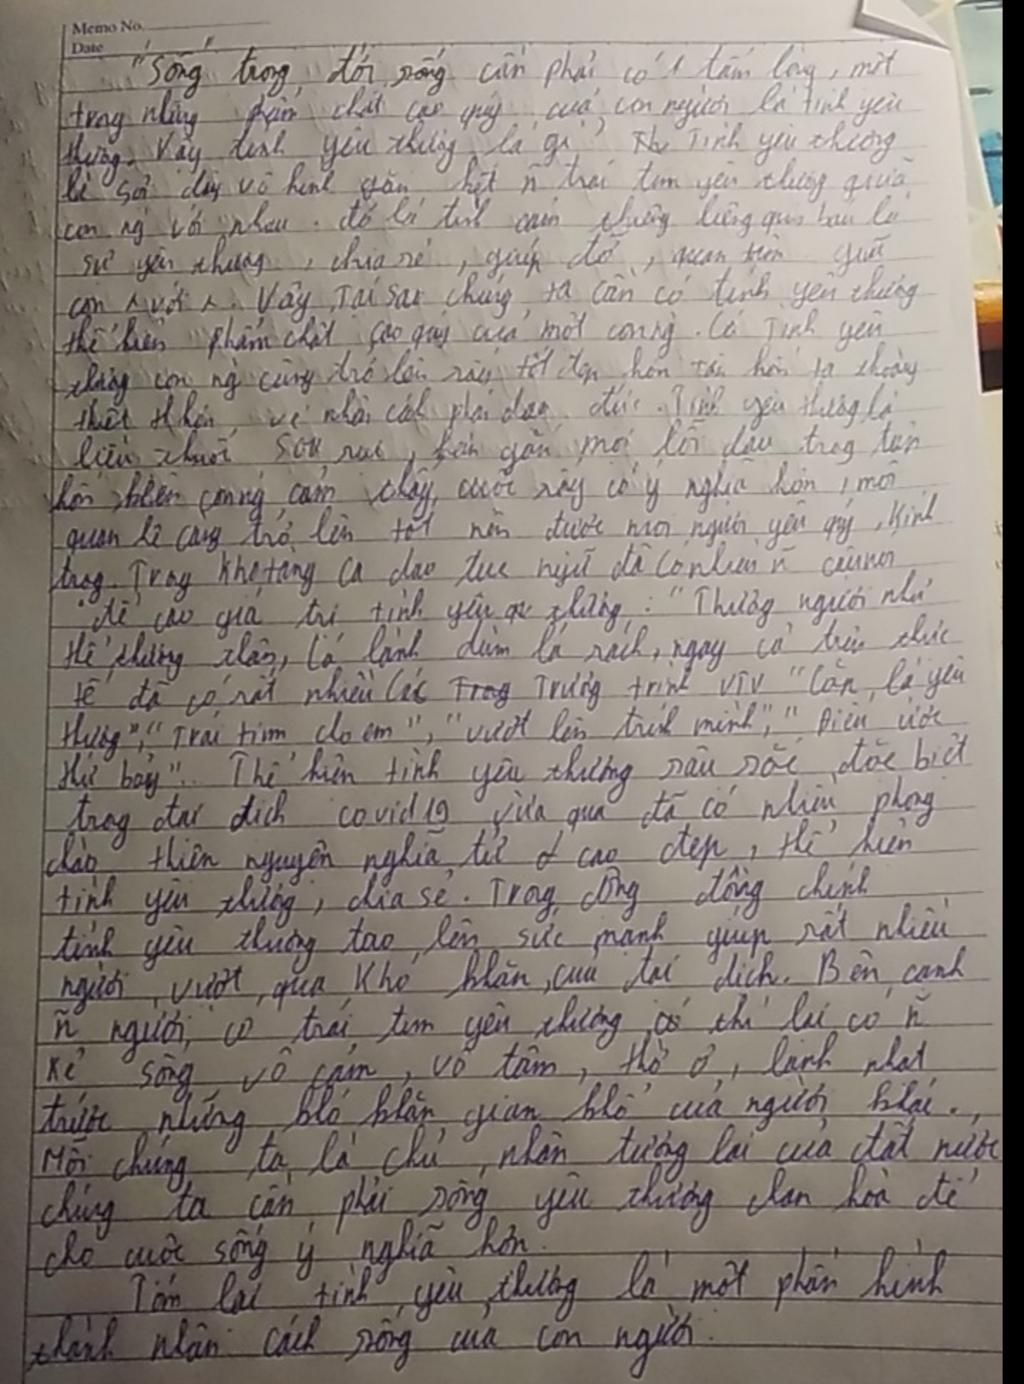 Memo No.
Date
"Sống" trong đời sống cần phải có 1 tấm lòng, một
trong những phẩm chất cao quý của con người là tình yêu
thương. Vậy tình yêu thương là gì? Tình yêu thương
là sợi dây vô hình gắn kết ñ trái tim yêu thương giữa
con ng với nhau. đó là tình cảm thiêng liêng quý báu là
sự yêu thương, chia sẻ, giúp đỡ, quan tâm giữa
con ^ với ^. Vậy Tại sao chúng ta cần có tình yêu thương
thể hiện phẩm chất cao quý của một con ng. Có Tình yêu
thương con ng cũng trở lên tốt đẹp hơn tâm hồn ta
thiết về nhân cách phải đạo đức. Tình yêu thương là
liều thuốc gắn mọi lỗi đau trong tâm
hồn khiến con ng cảm thấy cuộc này có ý nghĩa hơn, mối
quan hệ càng trở lên tốt nên được mọi người yêu quý, kính
trọng. Trong kho tàng ca dao tục ngữ đã có nhiều ñ câu nói
đề cao giá trị tình yêu thương: "Thương người như
thể thương thân, Lá lành đùm lá rách, ngay cả trên thực
tế đã có rất nhiều các Trương trình VTV "Cặp lá yêu
thương", "Trái tim cho em", "vượt lên trính mình", "Điều ước
thứ bảy".. Thể hiện tình yêu thương sâu sắc, đặc biệt
trong đại dịch covid 19 vừa qua đã có nhiều phong
chào thiện nguyện nghĩa cử cao đẹp, thể hiện
tình yêu thương, chia sẻ. Trong cộng đồng chính
tình yêu thương tạo lên sức mạnh giúp rất nhiều
người vượt qua khó khăn của đại dịch. Bên cạnh
ñ người có trái tim yêu thương thì lại có ñ
kẻ sống vô cảm, vô tâm, thờ ơ, lạnh nhạt
trước những khó khăn gian khổ của người khác.
Mỗi chúng ta là chủ nhân tương lai của đất nước
chúng ta cần phải sống yêu thương chan hoà để
cho cuộc sống ý nghĩa hơn.
Tóm lại tình yêu thương là một phần hình
thành nhân cách sống của con người.